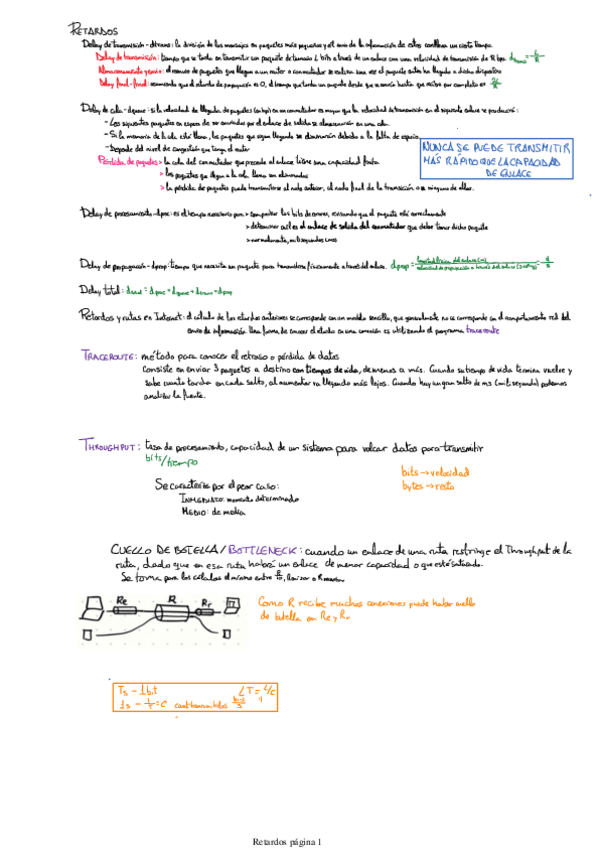 RETARDOS
Delay de transmisión - dtrans: la división de los mensajes en paquetes más pequeños y el envío de la información de estos conlleva un cierto tiempo.
Delay de transmisión: tiempo que se tarda en transmitir un paquete de tamaño L bits a través de un enlace con una velocidad de transmisión de R bps. dtrans = L/R
Almacenamiento y envío: el reenvío de paquetes que llegan a un router o conmutador se realiza una vez el paquete entero ha llegado a dicho dispositivo
Delay final-final: asumiendo que el retardo de propagación es 0, el tiempo que tarda un paquete desde que se envía hasta que se recibe por completo es 2L/R
Delay de cola - dqueue: si la velocidad de llegada de paquetes (en bps) a un conmutador es mayor que la velocidad de transmisión en el siguiente enlace se producirá:
- Los siguientes paquetes en espera de ser enviados por el enlace de salida se almacenarán en una cola.
- Si la memoria de la cola está llena, los paquetes que sigan llegando se eliminarán debido a la falta de espacio
- Depende del nivel de congestión que tenga el router
NUNCA SE PUEDE TRANSMITIR
MÁS RÁPIDO QUE LA CAPACIDAD
DE ENLACE
Pérdida de paquetes > la cola del conmutador que precede al enlace tiene una capacidad finita
> los paquetes que llegan a la cola llena son eliminados
> la pérdida de paquetes puede transmitirse al nodo anterior, al nodo final de la transmisión o a ninguno de ellos.
Delay de procesamiento - dproc: es el tiempo necesario para > comprobar los bits de error, revisando que el paquete esté correctamente
> determinar cuál es el enlace de salida del conmutador que debe tomar dicho paquete
> normalmente, milisegundos (ms)
Delay de propagación - dprop: tiempo que necesita un paquete para transmitirse físicamente a través del enlace. dprop = longitud física del enlace (m) / velocidad de propagación a través del enlace = d/s
Delay total: dtotal = dproc + dqueue + dtrans + dprop
Retardos y rutas en Internet: el cálculo de los retardos anteriores se corresponde con un modelo sencillo, que generalmente no se corresponde con el comportamiento real del
envío de información. Una forma de conocer el retardo en una conexión es utilizando el programa traceroute
TRACEROUTE: método para conocer el retraso o pérdida de datos
Consiste en enviar 3 paquetes a destino con tiempos de vida, de menos a más. Cuando su tiempo de vida termina vuelve y
sabe cuanto tardan en cada salto, al aumentar va llegando más lejos. Cuando hay un gran salto de ms (milisegundos) podemos
analizar la fuente.
THROUGHPUT: tasa de procesamiento, capacidad de un sistema para volcar datos para transmitir
bits/tiempo
bits → velocidad
bytes → resto
Se caracteriza por el peor caso:
INMEDIATO: momento determinado
MEDIO: de media
CUELLO DE BOTELLA/BOTTLENECK: cuando un enlace de una ruta restringe el Throughput de la
ruta, dado que en esa ruta habrá un enlace de menor capacidad o que esté saturado.
Se toma para los cálculos el mínimo entre
Re R Rr
Como R recibe muchas conexiones puede haber cuello
de botella en Re y Rr
Ts - 1 bit
LT = L/C
1s - 1/Ts = C cant transmitidos bits/s
Retardos página 1